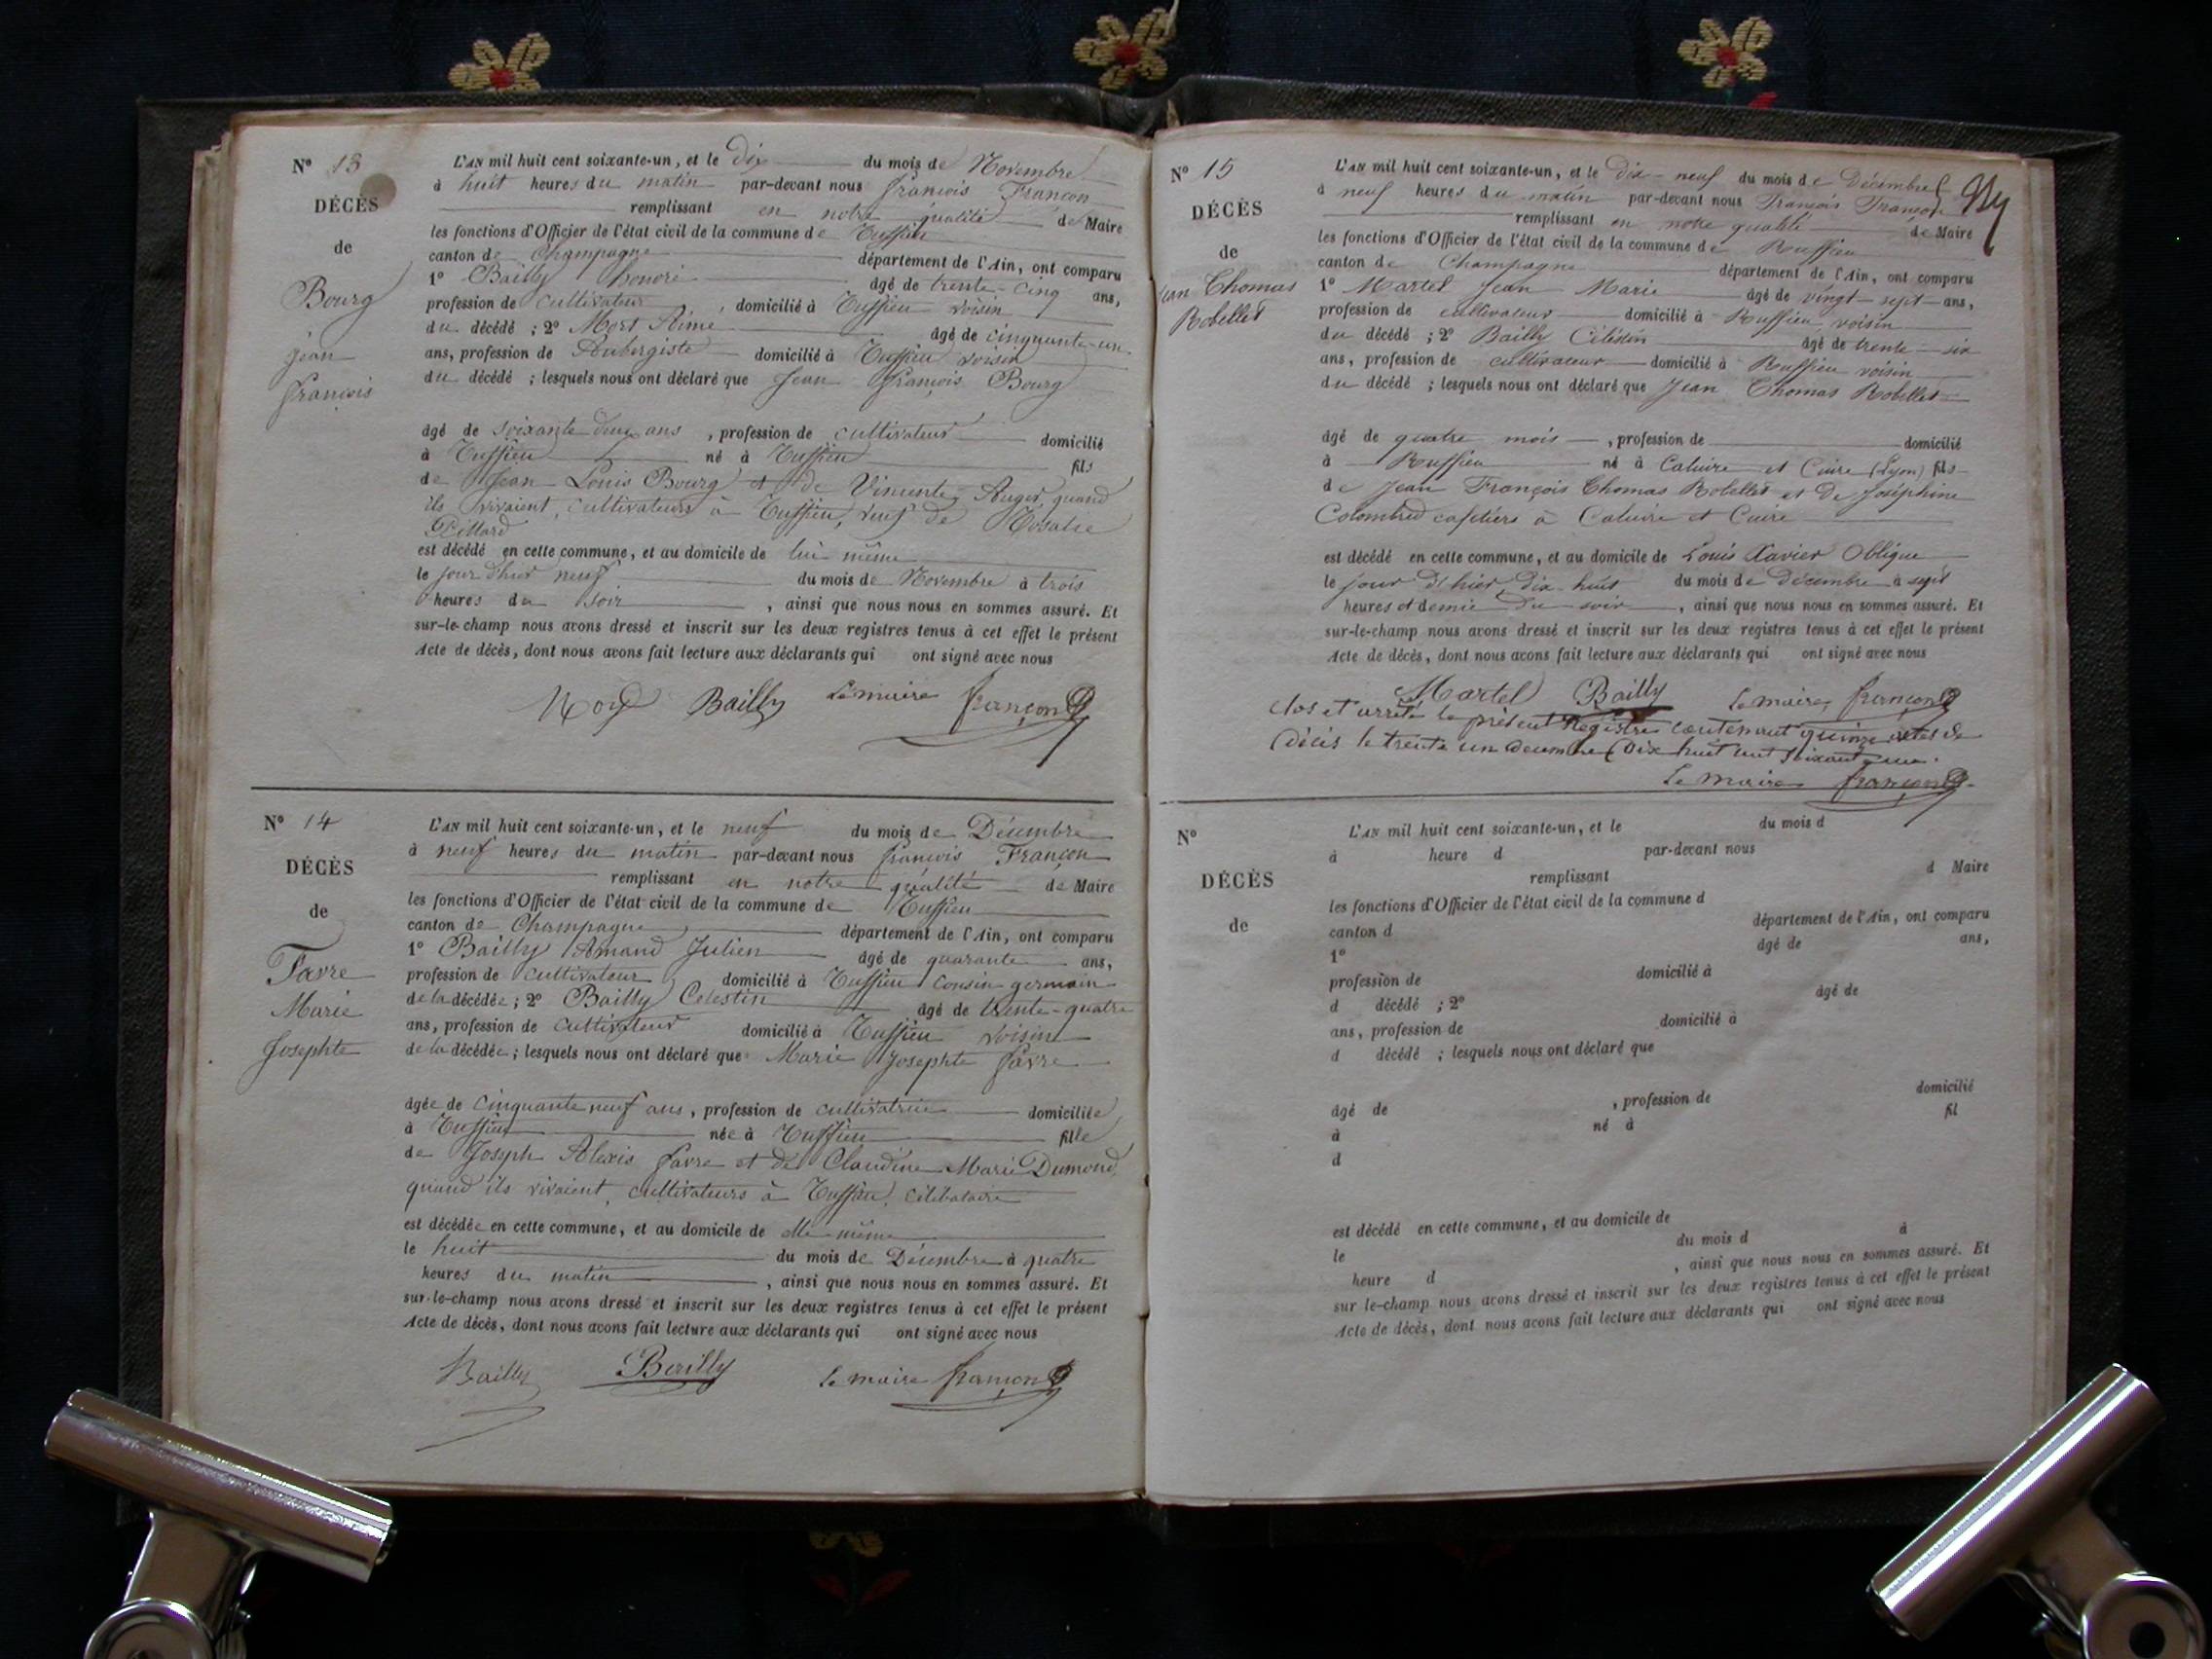 N° 13
DÉCÈS
de
Bourg
Jean
François
L'AN mil huit cent soixante-un, et le dix du mois de Novembre
à huit heures du matin par-devant nous françois Françon
remplissant en notre qualité de Maire
les fonctions d'Officier de l'état civil de la commune de Ruffieu
canton de Champagne département de l'Ain, ont comparu
1° Bailly honoré âgé de trente-cinq ans,
profession de cultivateur, domicilié à Ruffieu voisin
du décédé ; 2° Aimé âgé de cinquante-un
ans, profession de Aubergiste domicilié à Ruffieu voisin
du décédé ; lesquels nous ont déclaré que Jean françois Bourg
âgé de soixante deux ans, profession de cultivateur domicilié
à Ruffieu né à Ruffieu fils
de Jean Louis Bourg et de Vincente Auger, quand
ils vivaient, cultivateurs à Ruffieu, veuf de Rosalie
est décédé en cette commune, et au domicile de lui même
le jour d'hier neuf du mois de Novembre à trois
heures du soir, ainsi que nous nous en sommes assuré. Et
sur-le-champ nous avons dressé et inscrit sur les deux registres tenus à cet effet le présent
Acte de décès, dont nous avons fait lecture aux déclarants qui ont signé avec nous
Bailly Le maire françon
N° 14
DÉCÈS
de
Favre
Marie
Josephte
L'AN mil huit cent soixante-un, et le neuf du mois de Décembre
à neuf heures du matin par-devant nous françois Françon
remplissant en notre qualité de Maire
les fonctions d'Officier de l'état civil de la commune de Ruffieu
canton de Champagne département de l'Ain, ont comparu
1° Bailly Amand Julien âgé de quarante ans,
profession de cultivateur domicilié à Ruffieu cousin germain
de la décédée ; 2° Bailly Célestin âgé de trente-quatre
ans, profession de cultivateur domicilié à Ruffieu voisin
de la décédée ; lesquels nous ont déclaré que Marie Josephte favre
âgée de cinquante neuf ans, profession de cultivatrice domiciliée
à Ruffieu née à Ruffieu fille
de Joseph Alexis favre et de Claudine Marie Dumond,
quand ils vivaient, cultivateurs à Ruffieu, célibataire
est décédée en cette commune, et au domicile de elle même
le huit du mois de Décembre à quatre
heures du matin, ainsi que nous nous en sommes assuré. Et
sur-le-champ nous avons dressé et inscrit sur les deux registres tenus à cet effet le présent
Acte de décès, dont nous avons fait lecture aux déclarants qui ont signé avec nous
Bailly Bailly le maire françon
N° 15
DÉCÈS
de
Jean Thomas
Robellet
L'AN mil huit cent soixante-un, et le dix-neuf du mois de Décembre
à neuf heures du matin par-devant nous François Françon
remplissant en notre qualité de Maire
les fonctions d'Officier de l'état civil de la commune de Ruffieu
canton de Champagne département de l'Ain, ont comparu
1° Martel Jean Marie âgé de vingt-sept ans,
profession de cultivateur domicilié à Ruffieu, voisin
du décédé ; 2° Bailly Célestin âgé de trente-six
ans, profession de cultivateur domicilié à Ruffieu voisin
du décédé ; lesquels nous ont déclaré que Jean Thomas Robellet
âgé de quatre mois, profession de domicilié
à Ruffieu né à Caluire et Cuire (Lyon) fils
de Jean François Thomas Robellet et de Joséphine
Colombet cafetiers à Caluire et Cuire
est décédé en cette commune, et au domicile de Louis Xavier Oblique
le jour d'hier dix-huit du mois de décembre à sept
heures et demie du soir, ainsi que nous nous en sommes assuré. Et
sur-le-champ nous avons dressé et inscrit sur les deux registres tenus à cet effet le présent
Acte de décès, dont nous avons fait lecture aux déclarants qui ont signé avec nous
Martel Bailly le maire, françon
clos et arrêté le présent Registre contenant quinze actes de
décès le trente un décembre dix huit cent soixante un.
Le maire françon
N°
DÉCÈS
de
L'AN mil huit cent soixante-un, et le du mois d
à heure d par-devant nous
remplissant d Maire
les fonctions d'Officier de l'état civil de la commune d
canton d département de l'Ain, ont comparu
1° âgé de ans,
profession de domicilié à
d décédé ; 2° âgé de
ans, profession de domicilié à
d décédé ; lesquels nous ont déclaré que
âgé de , profession de domicilié
à né à fil
d
est décédé en cette commune, et au domicile de
le du mois d à
heure d , ainsi que nous nous en sommes assuré. Et
sur le-champ nous avons dressé et inscrit sur les deux registres tenus à cet effet le présent
Acte de décès, dont nous avons fait lecture aux déclarants qui ont signé avec nous